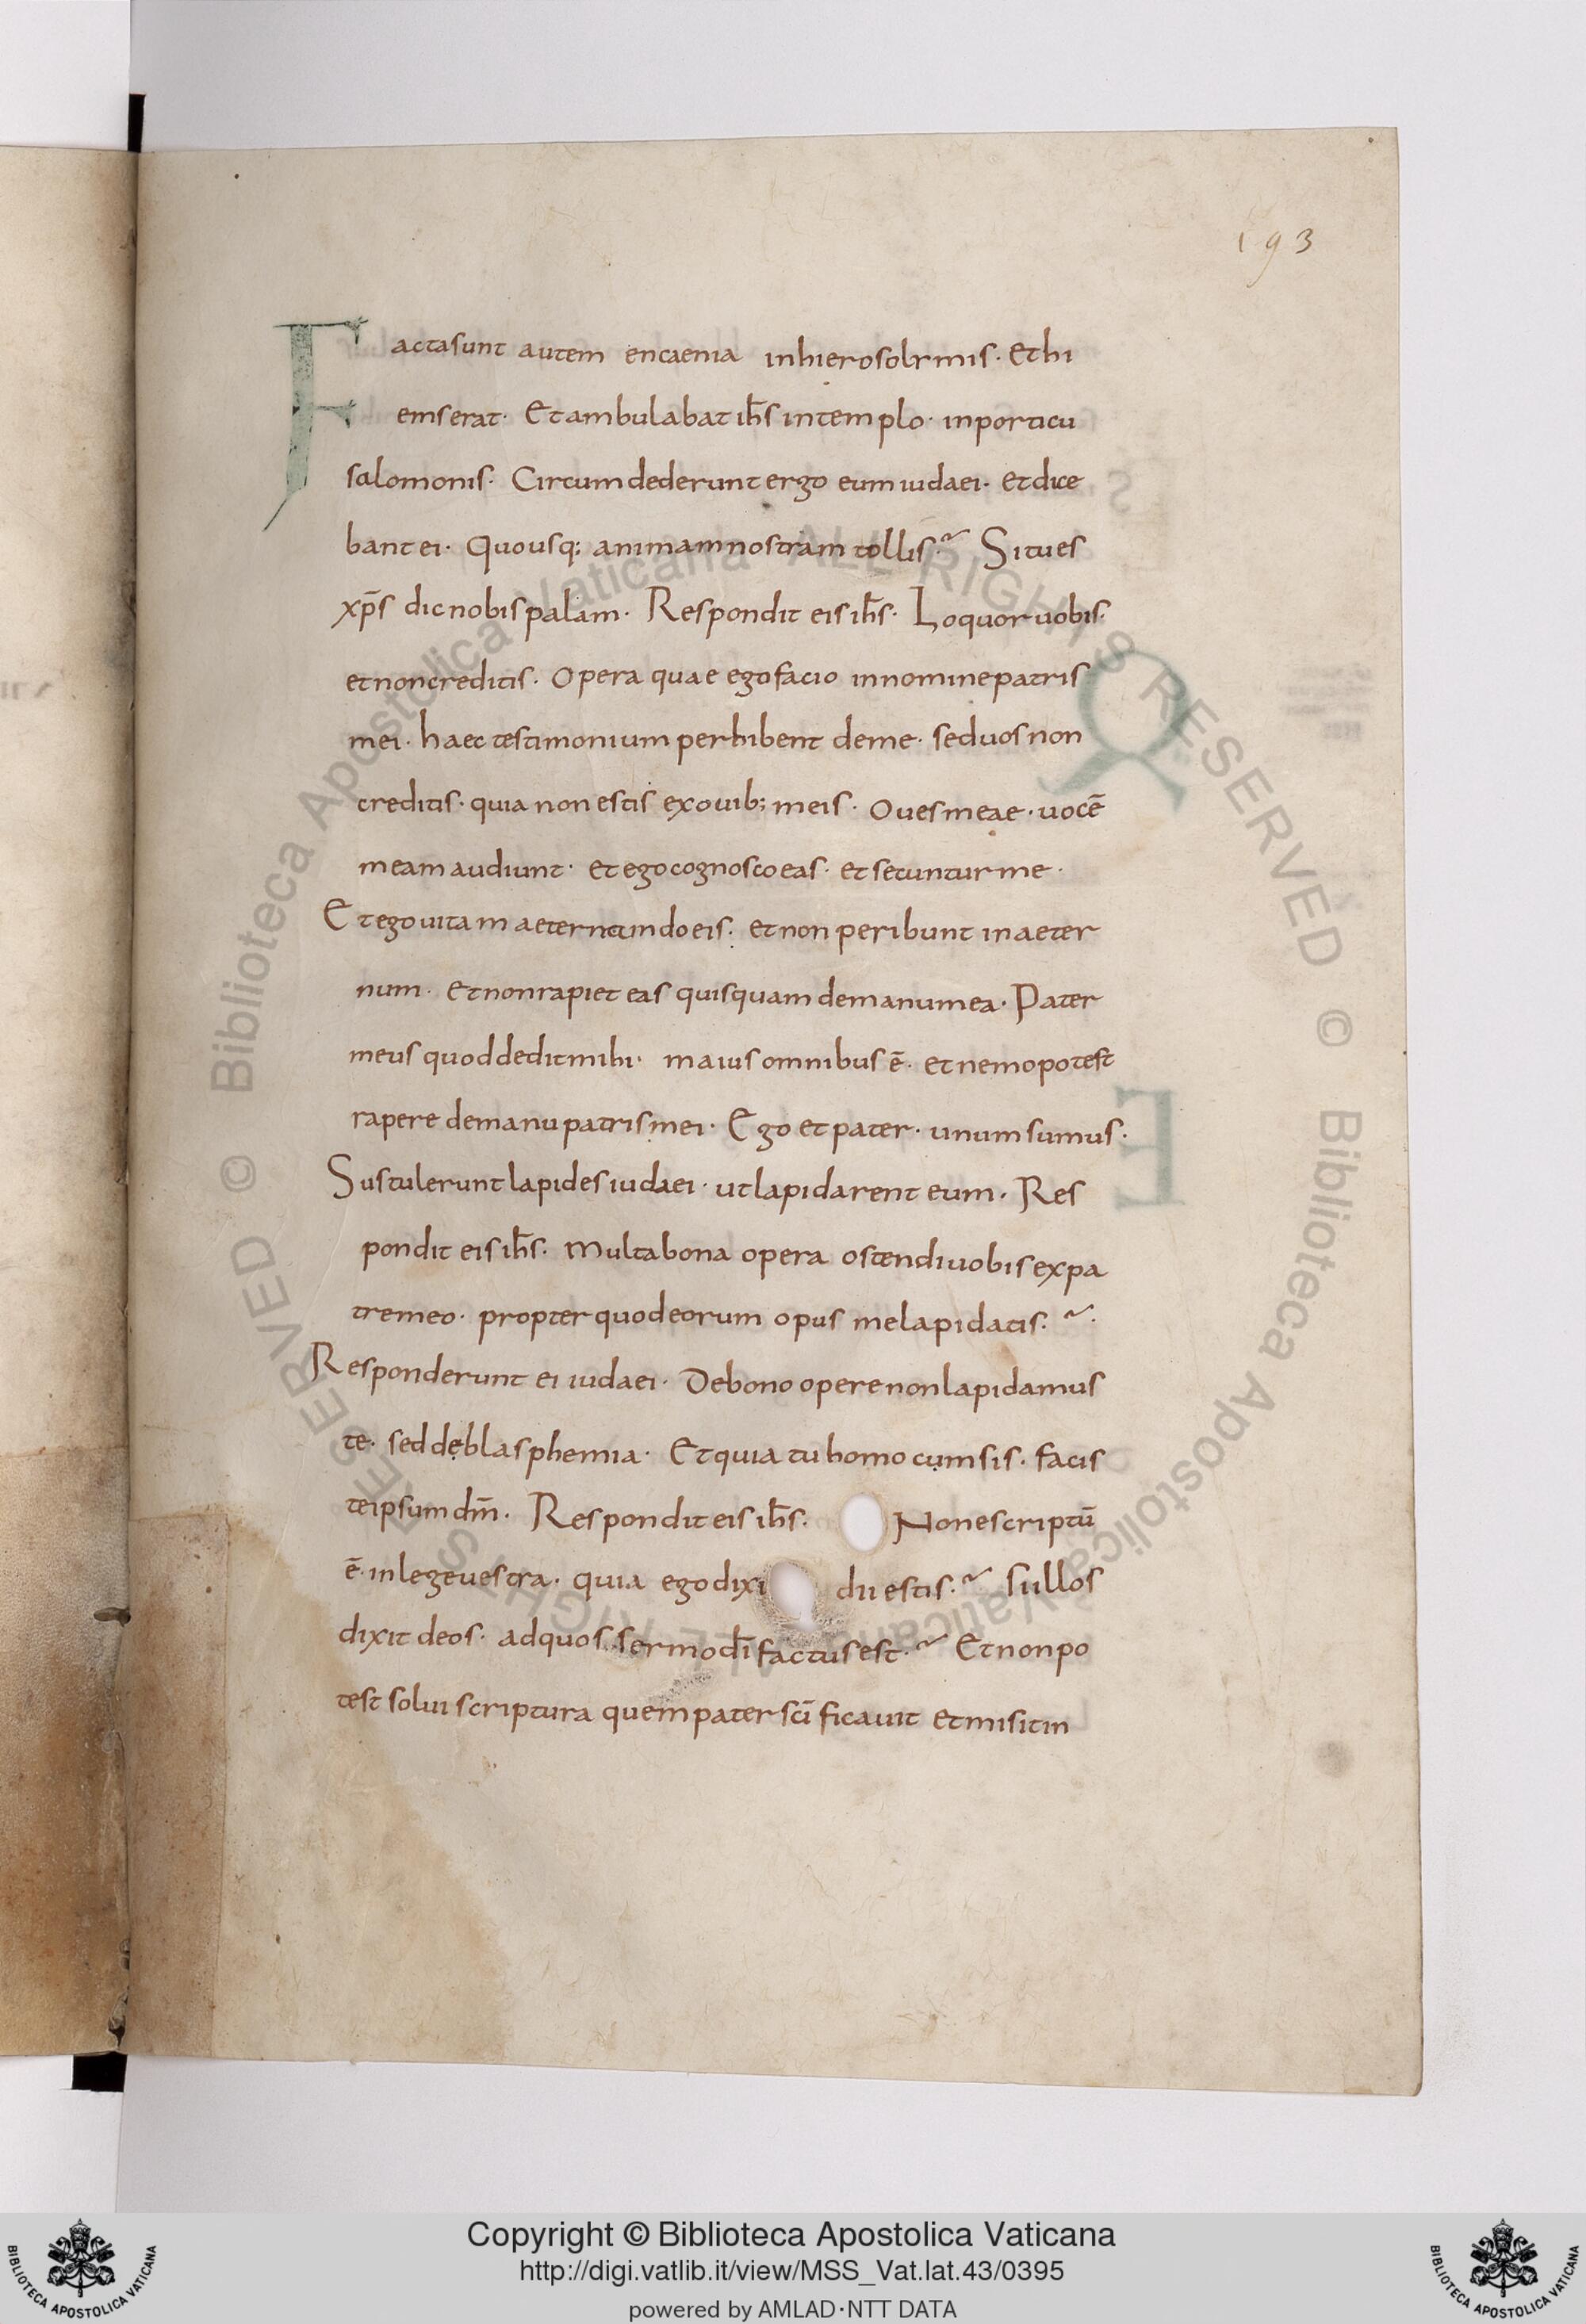 193
Factasunt autem encaenia inhierosolymis· Ethi
emserat· Etambulabat ih̅s intemplo· inporticu
salomonis· Circumdederunt ergo eum iudaei· Etdice
bant ei· Quousq; animam nostram tollis·~ Situes
xp̅s dicnobis palam· Respondit eis ih̅s· Loquor uobis·
et non creditis· Opera quae ego facio innomine patris
mei· haec testimonium perhibent deme· sed uos non
creditis· quia non estis exouib; meis· Oues meae· uocē
meam audiunt· et ego cognosco eas· et secuntur me·
Et ego uitam aeternam do eis· et non peribunt inaeter
num· Et non rapiet eas quisquam demanu mea· Pater
meus quod dedit mihi· maius omnibus ē· et nemo potest
rapere demanu patris mei· Ego et pater· unum sumus·
Sustulerunt lapides iudaei· ut lapidarent eum· Res
pondit eis ih̅s· Multa bona opera ostendi uobis expa
tre meo· propter quod eorum opus me lapidatis·~·
Responderunt ei iudaei· Debono opere non lapidamus
te· sed deblasphemia· Et quia tu homo cum sis· facis
te ipsum dm̅· Respondit eis ih̅s· Nonescriptū
ē· inlege uestra· quia ego dixi dii estis·~ Siillos
dixit deos· ad quos sermo dī factus est·~ Et non po
test solui scriptura quem pater scīficauit et misit in
© Biblioteca Apostolica Vaticana ALL RIGHTS RESERVED © Biblioteca Apostolica Vaticana ALL RIGHTS RESERVED
Copyright © Biblioteca Apostolica Vaticana
http://digi.vatlib.it/view/MSS_Vat.lat.43/0395
powered by AMLAD·NTT DATA
BIBLIOTECA APOSTOLICA VATICANA
BIBLIOTECA APOSTOLICA VATICANA